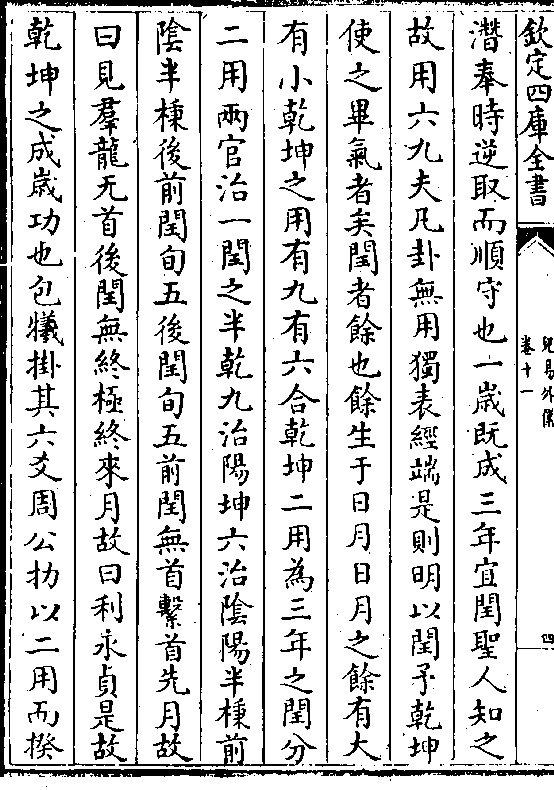 欽定四庫全書
兒易外儀
卷十一
四
潛奉時逆取而順守也一歲既成三年宜閏聖人知之
故用六九夫凡卦無用獨表經端是則明以閏予乾坤
使之畢氣者矣閏者餘也餘生于日月日月之餘有大
有小乾坤之用有九有六合乾坤二用為三年之閏分
二用兩官治一閏之半乾九治陽坤六治隂陽半棟前
隂半棟後前閏旬五後閏旬五前閏無首繫首先月故
曰見羣龍无首後閏無終極終來月故曰利永貞是故
乾坤之成歲功也包犧掛其六爻周公扐以二用而揆